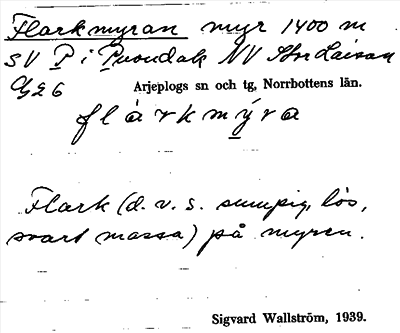 Flarkmyran myr 1400 m
SV P i Puondak NV Stor Laisan
G26 Arjeplogs sn och tg, Norrbottens län.
flárkmýra
Flark (d.v.s. sumpig, lös,
svart massa) på myren.
Sigvard Wallström, 1939.